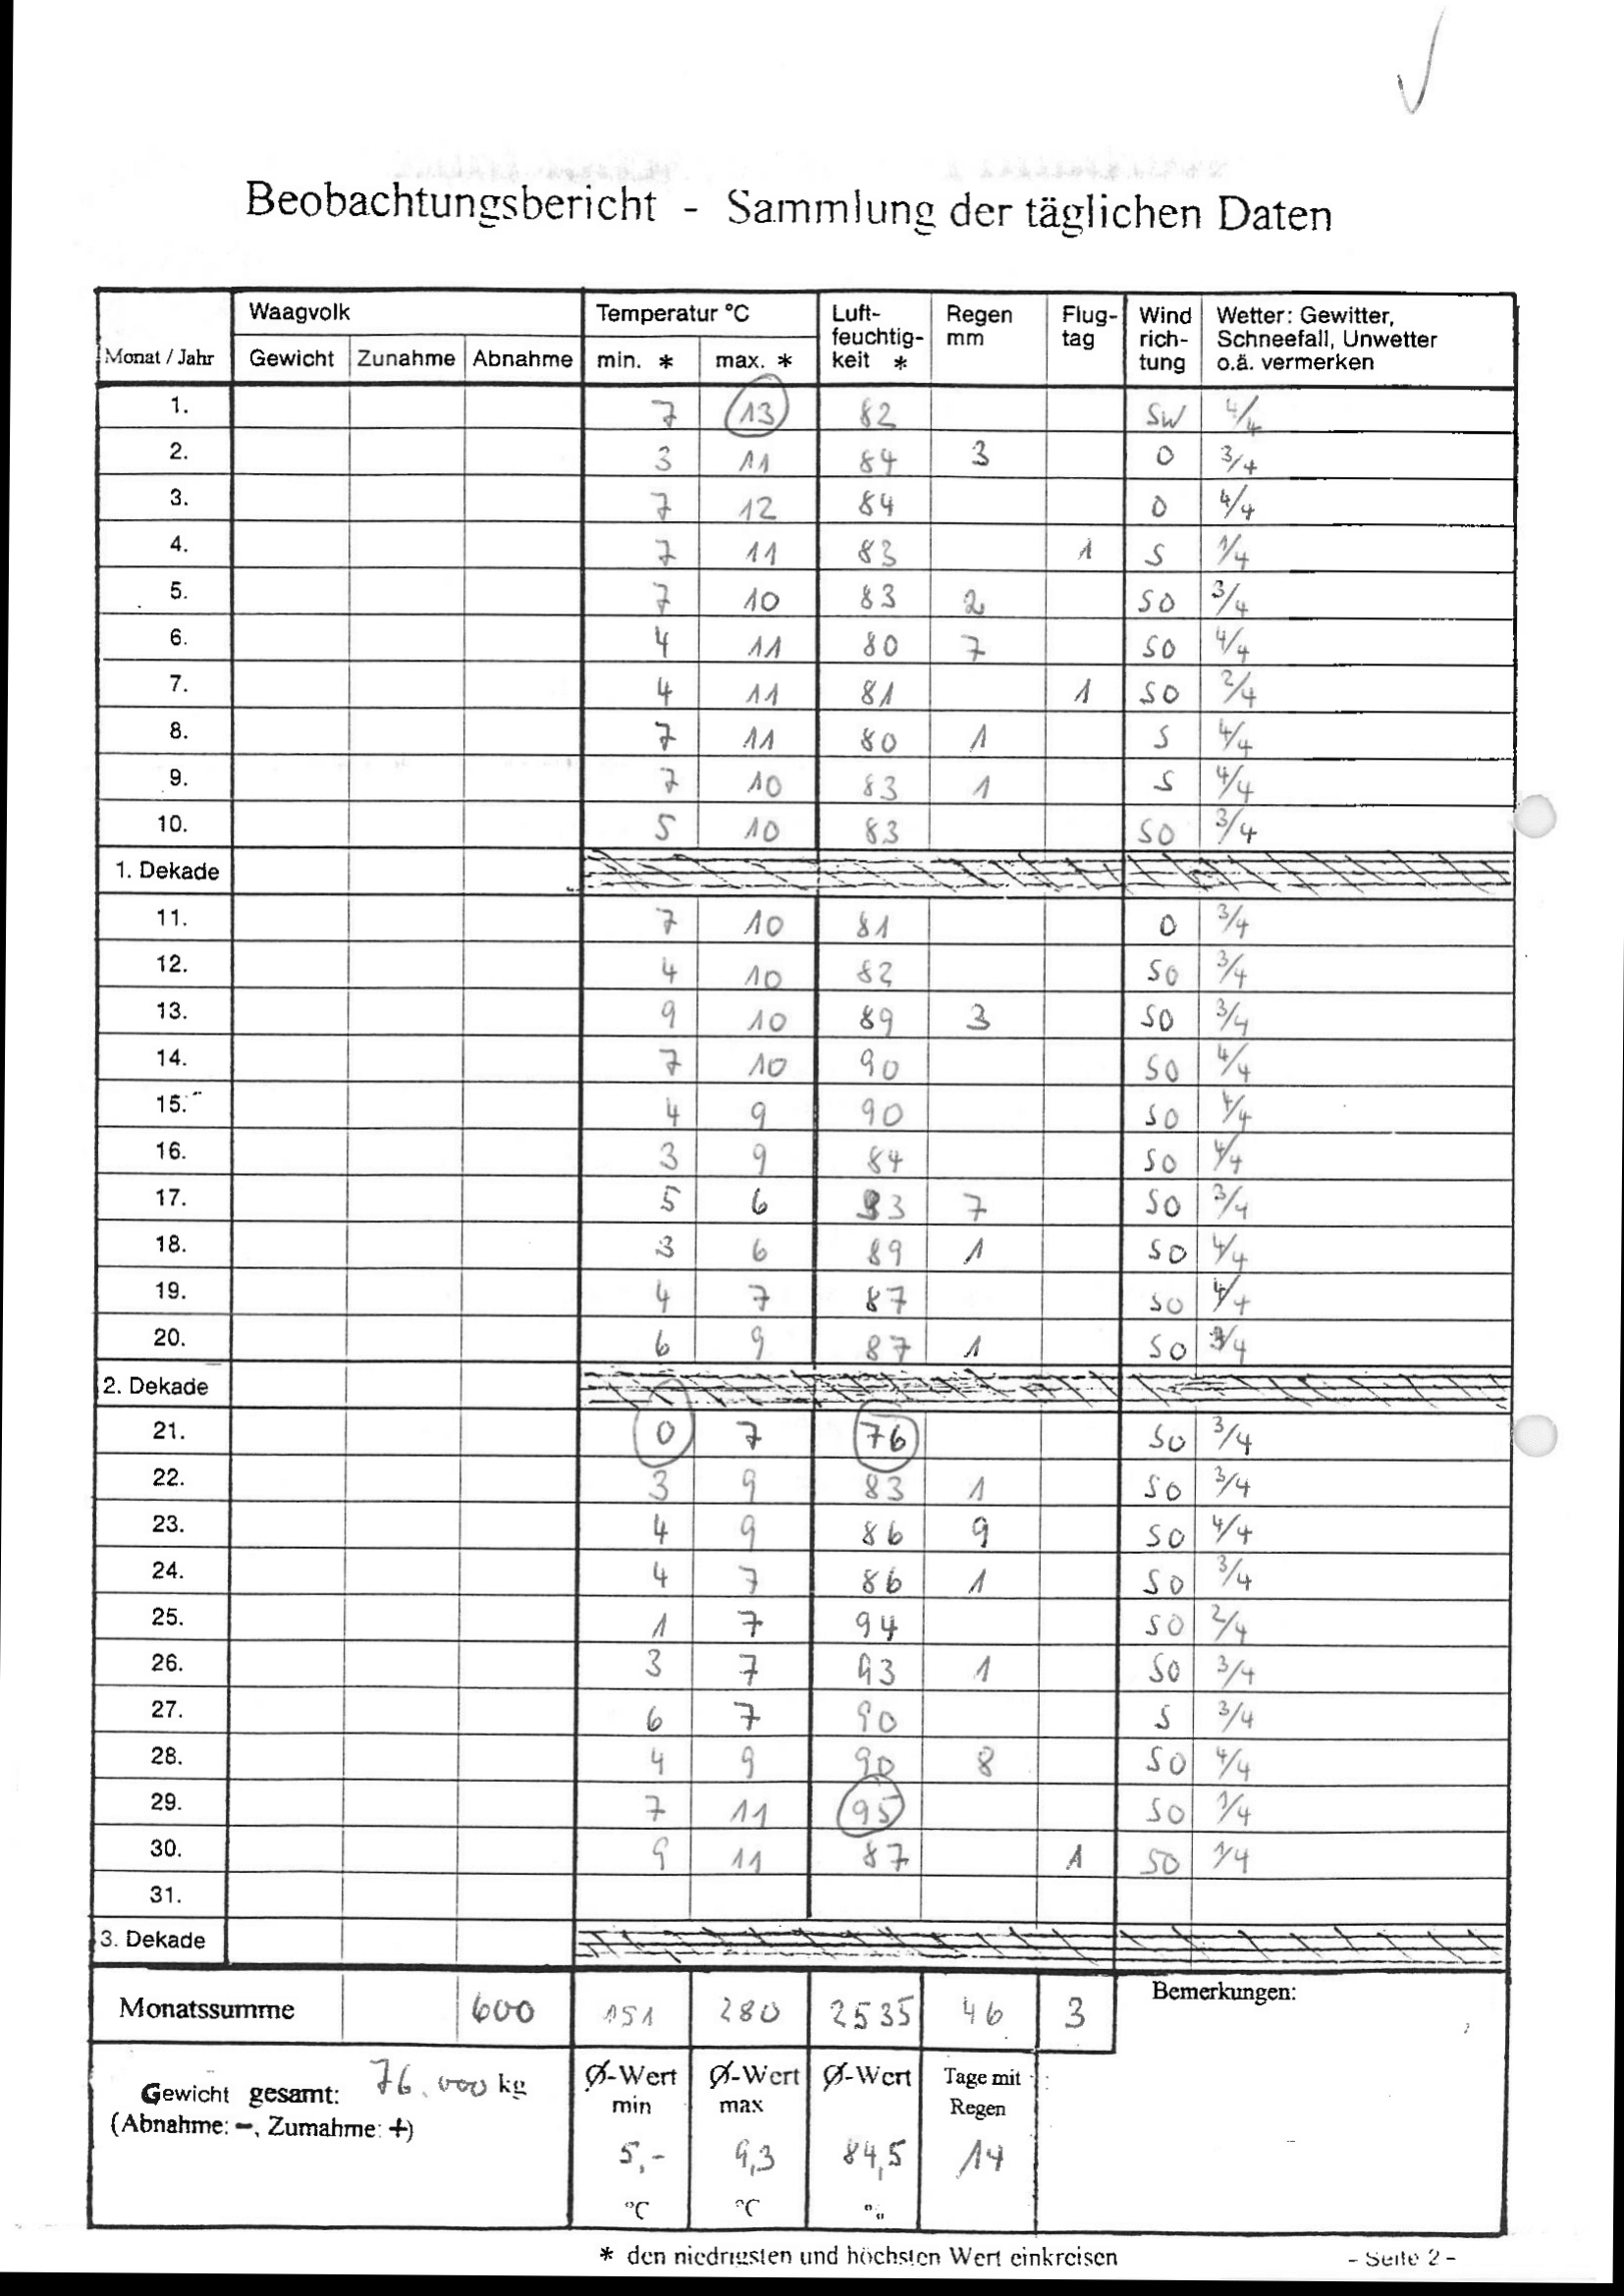 Beobachtungsbericht - Sammlung der täglichen Daten
Monat / Jahr Waagvolk Temperatur °C Luft-feuchtig-keit * Regen mm Flug-tag Wind rich-tung Wetter: Gewitter, Schneefall, Unwetter o.ä. vermerken
Gewicht Zunahme Abnahme min. * max. *
1. 7 13 82 SW 4/4
2. 3 11 84 3 O 3/4
3. 7 12 84 O 4/4
4. 7 11 83 1 S 1/4
5. 7 10 83 2 SO 3/4
6. 4 11 80 7 SO 4/4
7. 4 11 81 1 SO 2/4
8. 7 11 80 1 S 4/4
9. 7 10 83 1 S 4/4
10. 5 10 83 SO 3/4
1. Dekade
11. 7 10 81 O 3/4
12. 4 10 82 SO 3/4
13. 9 10 89 3 SO 3/4
14. 7 10 90 SO 4/4
15. 4 9 90 SO 4/4
16. 3 9 84 SO 4/4
17. 5 6 83 7 SO 3/4
18. 3 6 89 1 SO 4/4
19. 4 7 87 SO 4/4
20. 6 9 87 1 SO 3/4
2. Dekade
21. 0 7 76 SO 3/4
22. 3 9 83 1 SO 3/4
23. 4 9 86 9 SO 4/4
24. 4 7 86 1 SO 3/4
25. 1 7 94 SO 2/4
26. 3 7 93 1 SO 3/4
27. 6 7 90 S 3/4
28. 4 9 90 8 SO 4/4
29. 7 11 95 SO 1/4
30. 9 11 87 1 SO 1/4
31.
3. Dekade
Monatssumme 600 151 280 2535 46 3 Bemerkungen:
Gewicht gesamt: 76.000 kg
(Abnahme: -, Zumahme: +)
Ø-Wert min Ø-Wert max Ø-Wert Tage mit Regen
5,- 9,3 84,5 14
°C °C %
* den niedrigsten und höchsten Wert einkreisen
- Seite 2 -